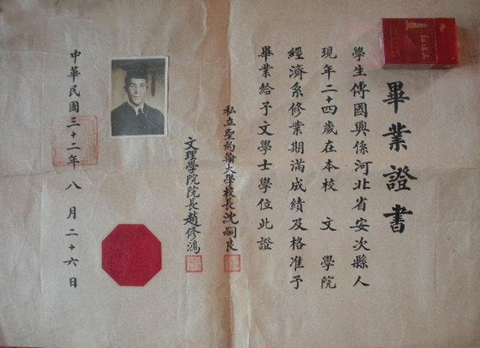 畢業證書
學生傅國興係河北省安次縣人
現年二十四歲在本校　文　學院
經濟系修業期滿成績及格准予
畢業給予文學士學位此證
私立聖約翰大學校長沈嗣良
文理學院院長趙修鴻
中華民國三十二年八月二十六日